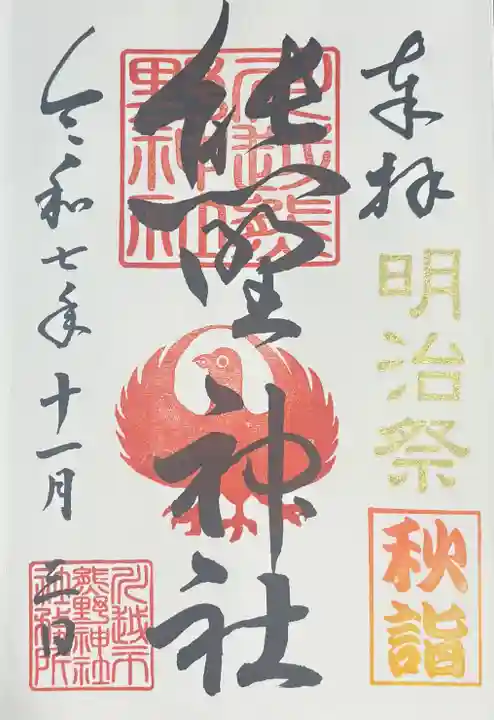 奉拝
明治祭
秋詣
熊野神社
川越熊
野神社
令和七年十一月
三日
川越市
熊野神社
社務所